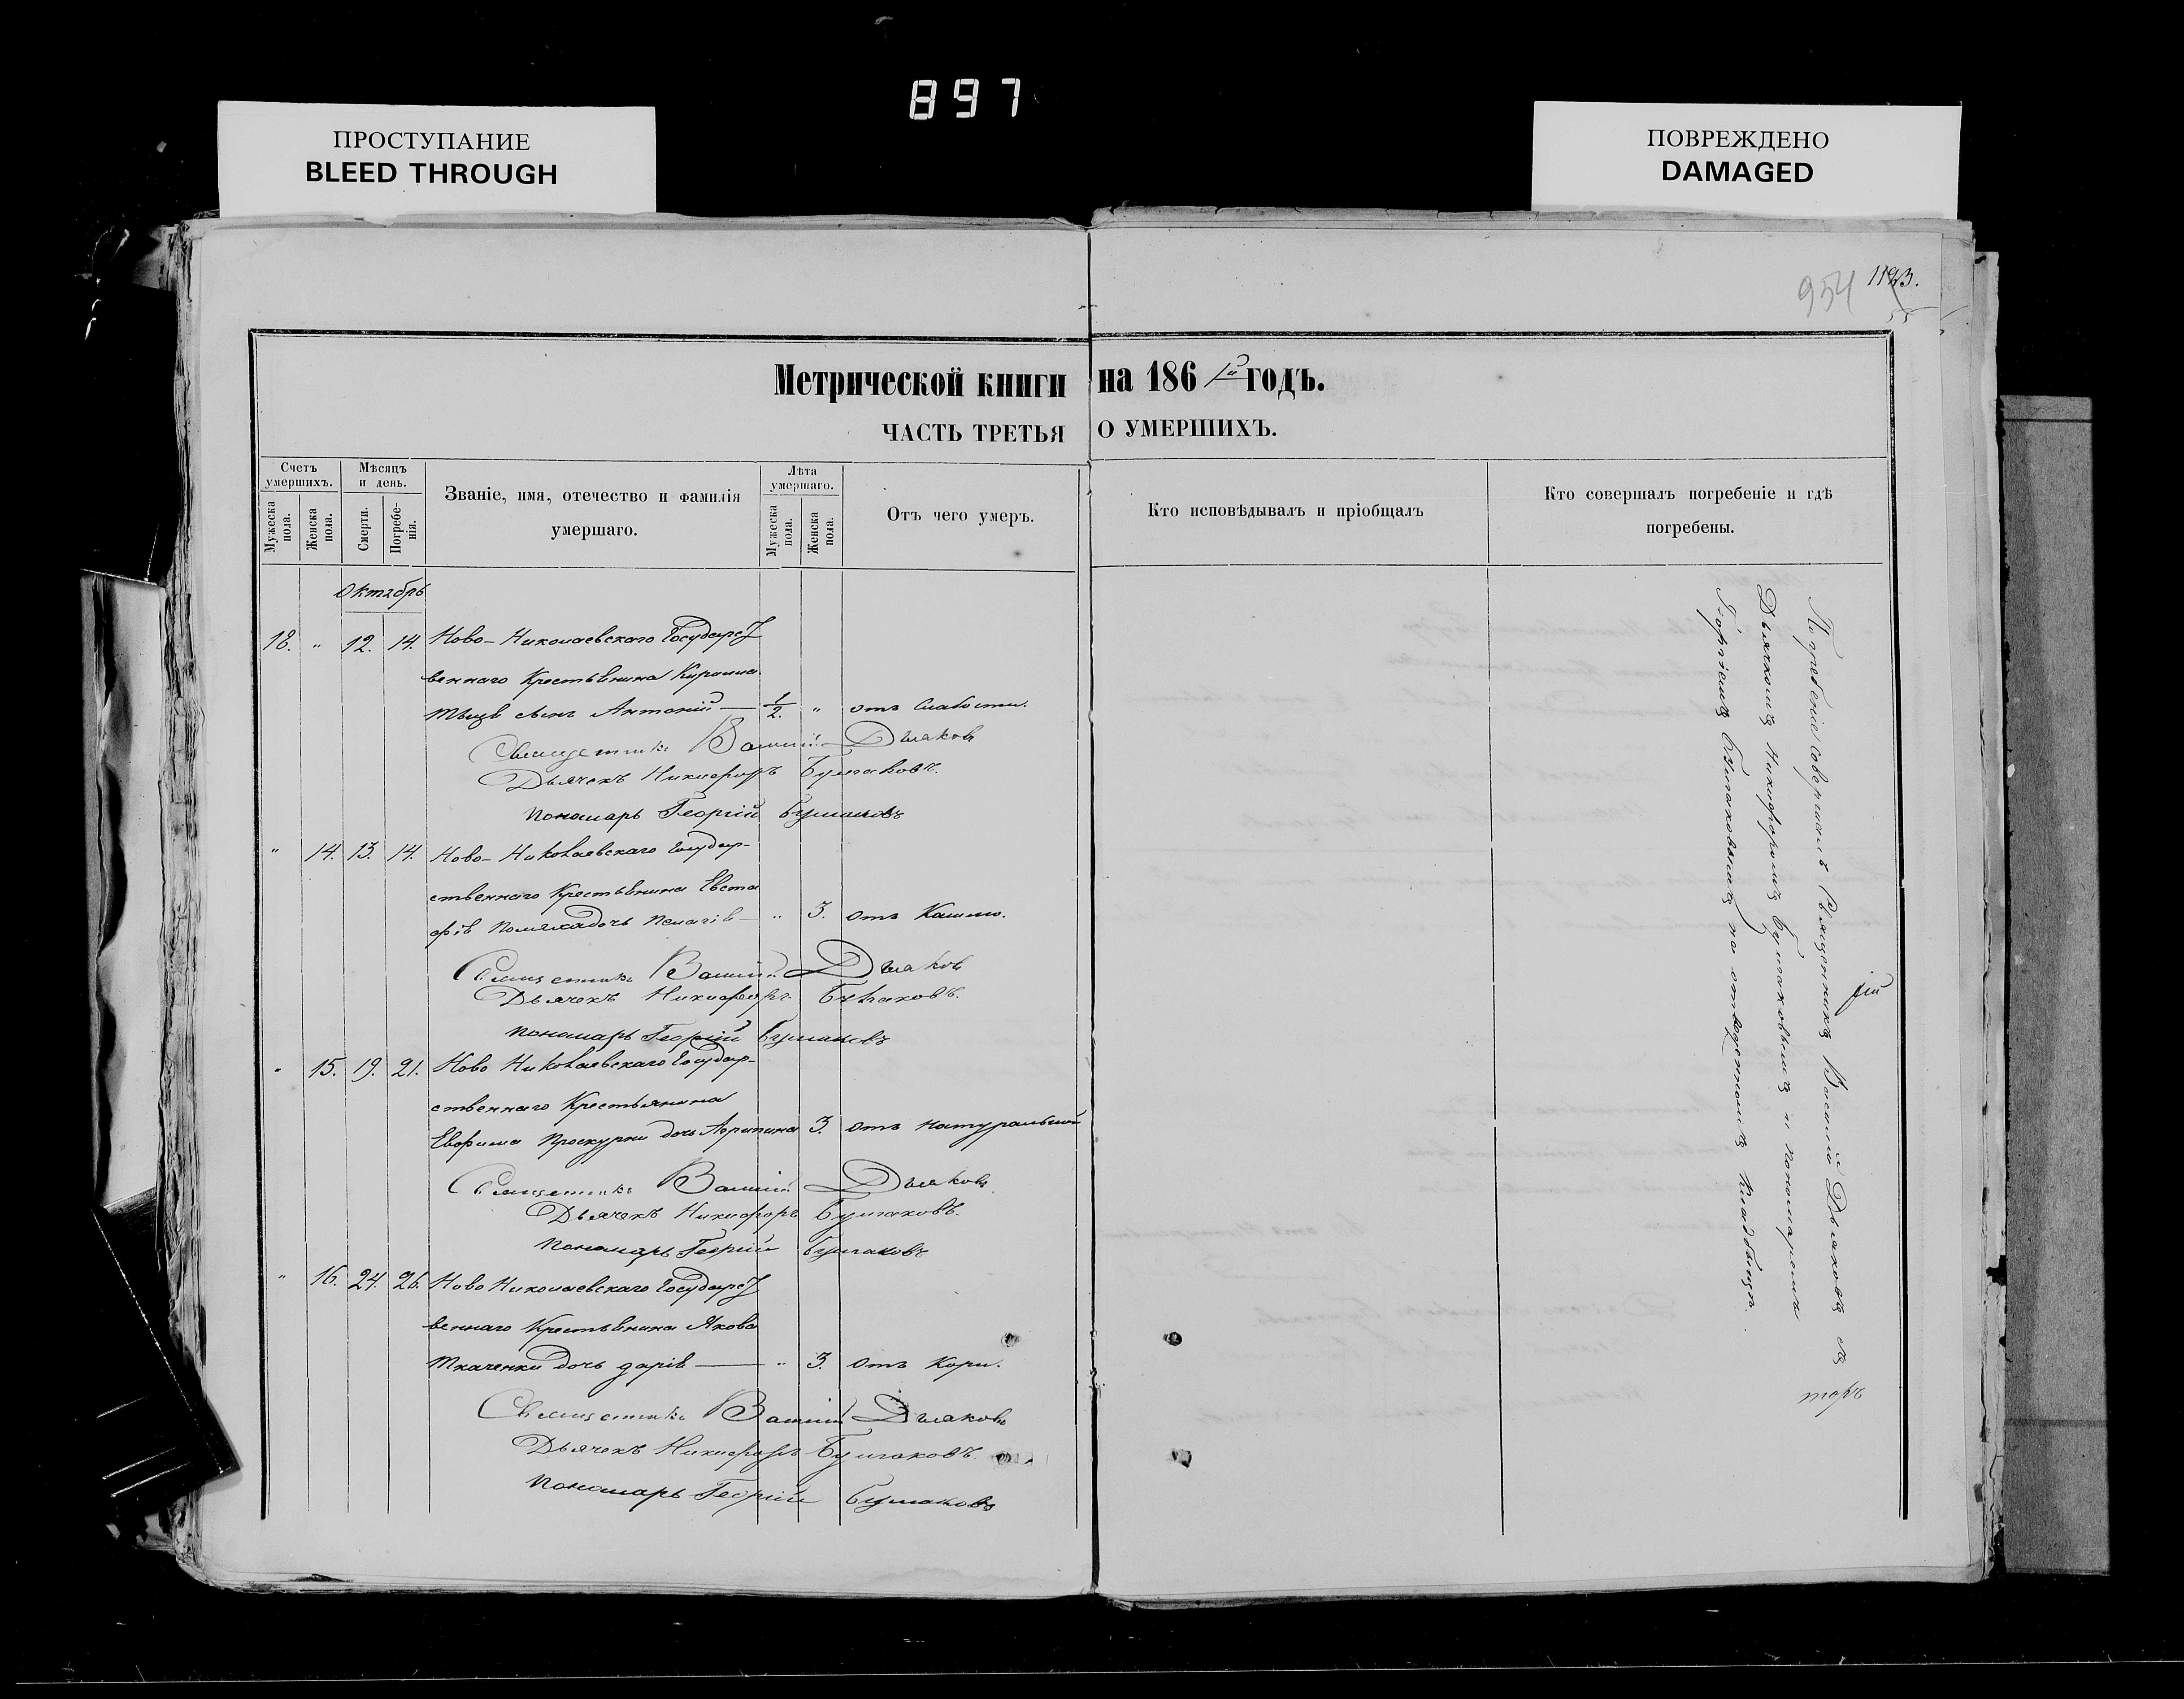 897
ПРОСТУПАНИЕ
BLEED THROUGH
ПОВРЕЖДЕНО
DAMAGED
954
Метрической книги на 186 1й годъ.
ЧАСТЬ ТРЕТЬЯ О УМЕРШИХЪ.
Счетъ умершихъ.
Мужеска пола.
Женска пола.
Мѣсяцъ и день.
Смерти.
Погребенія.
Званіе, имя, отечество и фамилія умершаго.
Лѣта умершаго.
Мужеска пола.
Женска пола.
Отъ чего умеръ.
Кто исповѣдывалъ и пріобщалъ
Кто совершалъ погребеніе и гдѣ погребены.
Октябрь
18. " 12. 14. Ново-Николаевскаго Государст
веннаго Крестьянина
сынъ Антоній — 1/2. " отъ слабости.
Священникъ Василій Дьяковъ
Дьячекъ Никифоръ Булгаковъ.
Пономарь Георгій Булгаковъ
" 14. 13. 14. Ново-Николаевскаго Государ-
ственнаго Крестьянина Евста
фія дочь Пелагія — " 3. отъ Кашлю.
Священникъ Василій Дьяковъ
Дьячекъ Никифоръ Булгаковъ.
Пономарь Георгій Булгаковъ
" 15. 19. 21. Ново Николаевскаго Государ-
ственнаго Крестьянина
Евфима Проскурни дочь Агрипина 3. отъ натуральной
Священникъ Василій Дьяковъ
Дьячекъ Никифоръ Булгаковъ.
Пономарь Георгій Булгаковъ
" 16. 24. 26. Ново Николаевскаго Государст
веннаго Крестьянина Якова
Ткаченки дочь Дарія — " 3. отъ Кори.
Священникъ Василій Дьяковъ
Дьячекъ Никифоръ Булгаковъ.
Пономарь Георгій Булгаковъ
Погребеніе совершалъ Священникъ Василій Дьяковъ съ
Дьячкомъ Никифоромъ Булгаковымъ и пономаремъ
Георгіемъ Булгаковымъ на отведенномъ Кладбищѣ.